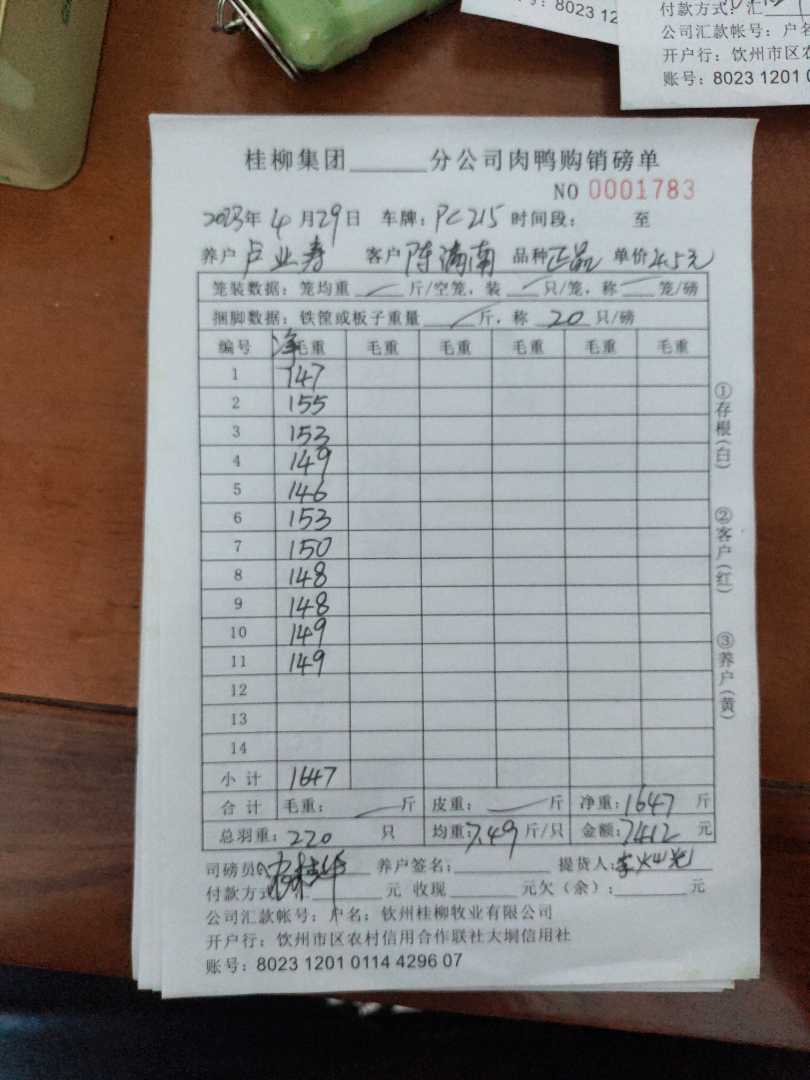 号: 8023 12
付款方式: 汇
公司汇款帐号: 户名
开户行: 饮州市区农
账号: 8023 1201 0
桂柳集团______分公司肉鸭购销磅单
NO 0001783
2023年 4月29日 车牌: PC215 时间段: 至
养户 卢业寿 客户 陈满南 品种 正品 单价 4.5元
笼装数据: 笼均重 斤/空笼, 装 只/笼, 称 笼/磅
捆脚数据: 铁筐或板子重量 斤, 称 20 只/磅
编号 净毛重 毛重 毛重 毛重 毛重 毛重
1 147
2 155
3 153
4 149
5 146
6 153
7 150
8 148
9 148
10 149
11 149
12
13
14
小计 1647
合计 毛重: 斤 皮重: 斤 净重: 1647 斤
总羽重: 220 只 均重: 7.49 斤/只 金额: 7412 元
司磅员 养户签名: 提货人:
付款方式 元 收现 元欠（余）: 元
公司汇款帐号: 户名: 钦州桂柳牧业有限公司
开户行: 饮州市区农村信用合作联社大垌信用社
账号: 8023 1201 0114 4296 07
①存根(白)
②客户(红)
③养户(黄)